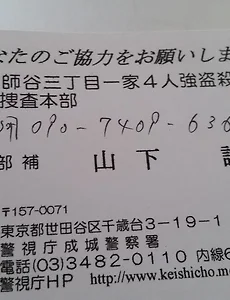 なたのご協力をお願いしま
師谷三丁目一家4人強盗殺
捜査本部
090-7409-636
部補 山下
〒157-0071
東京都世田谷区千歳台3-19-1
警視庁成城警察署
電話(03)3482-0110 内線6
警視庁HP http://www.keishicho.me